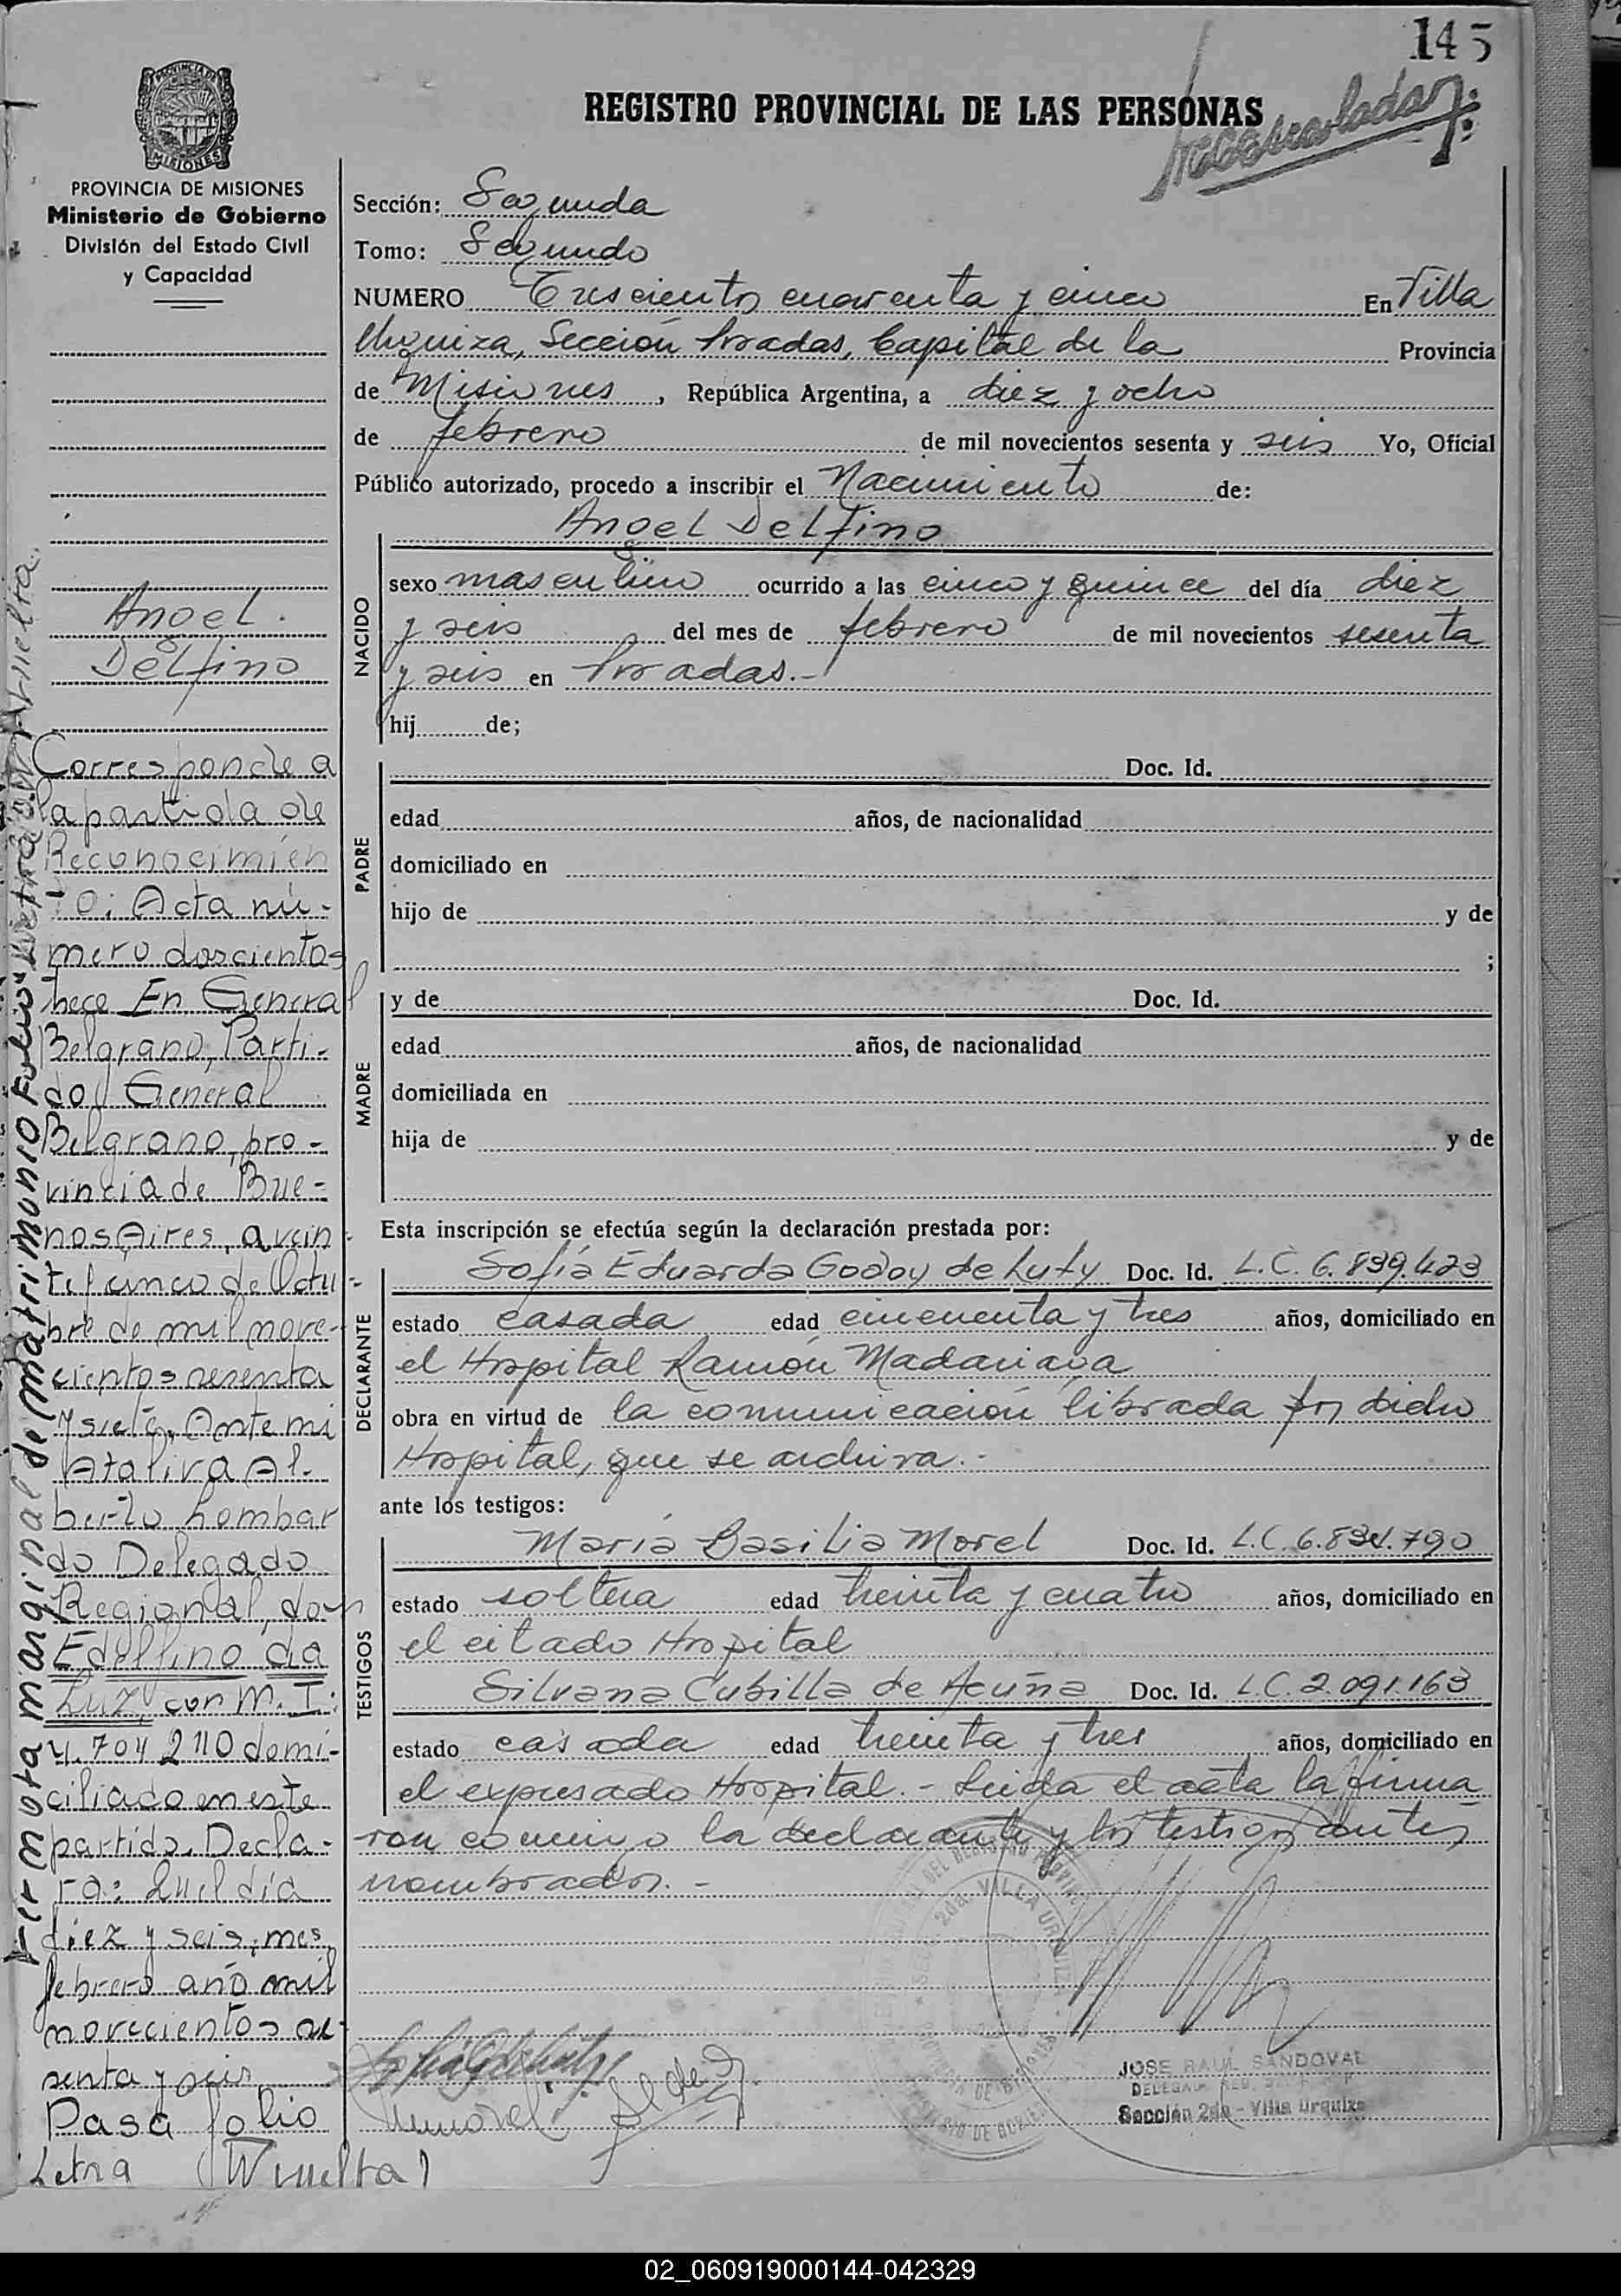 145
REGISTRO PROVINCIAL DE LAS PERSONAS
PROVINCIA DE MISIONES
PROVINCIA DE MISIONES
Ministerio de Gobierno
División del Estado Civil
y Capacidad
Angel
Delfino
Corresponde a
la partida de
Reconocimien
to: Acta nú-
mero doscientos
trece En General
Belgrano, Parti-
do General
Belgrano, pro-
vincia de Bue-
nos Aires, a vein
ticinco de Octu-
bre de mil nove-
cientos sesenta
y siete. Ante mi
Ataliva Al-
berto Lombar
do Delegado
Regional, don
Edelfino da
Luz, con M. I:
4.704 210 domi-
ciliado en este
partido. Decla-
ra: Que el día
diez y seis, mes
febrero año mil
novecientos se-
senta y seis
Pasa folio
Letra (Vuelta)
Ver nota marginal de matrimonio Folio "Letra Vuelta
Sección: Segunda
Tomo: Segundo
NUMERO Trescientos cuarenta y cinco En Villa
Urquiza, Sección Posadas, Capital de la Provincia
de Misiones, República Argentina, a diez y ocho
de febrero de mil novecientos sesenta y seis Yo, Oficial
Público autorizado, procedo a inscribir el Nacimiento de:
Angel Delfino
NACIDO
sexo masculino ocurrido a las cinco y quince del día diez
y seis del mes de febrero de mil novecientos sesenta
y seis en Posadas.-
hij de;
PADRE
Doc. Id.
edad años, de nacionalidad
domiciliado en
hijo de y de
;
MADRE
y de Doc. Id.
edad años, de nacionalidad
domiciliada en
hija de y de
Esta inscripción se efectúa según la declaración prestada por:
DECLARANTE
Sofía Eduarda Godoy de Luty Doc. Id. L.C. 6.839.423
estado casada edad cincuenta y tres años, domiciliado en
el Hospital Ramón Madariaga
obra en virtud de la comunicación librada por dicho
Hospital, que se archiva.-
ante los testigos:
TESTIGOS
María Basilia Morel Doc. Id. L.C. 6.834.790
estado soltera edad treinta y cuatro años, domiciliado en
el citado Hospital
Silvana Cubilla de Acuña Doc. Id. L.C. 2.091.163
estado casada edad treinta y tres años, domiciliado en
el expresado Hospital.- Leida el acta la firma
ron conmigo la declarante y los testigos antes
nombrados.-
JOSE RAUL SANDOVAL
Sección 2da - Villa Urquiza
02_060919000144-042329